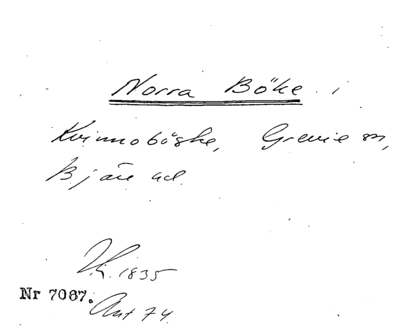 Norra Böke i
Kvinnoböske, Grevie sn,
Bjäre hd.
1835
Nr 7067.
Ant 74